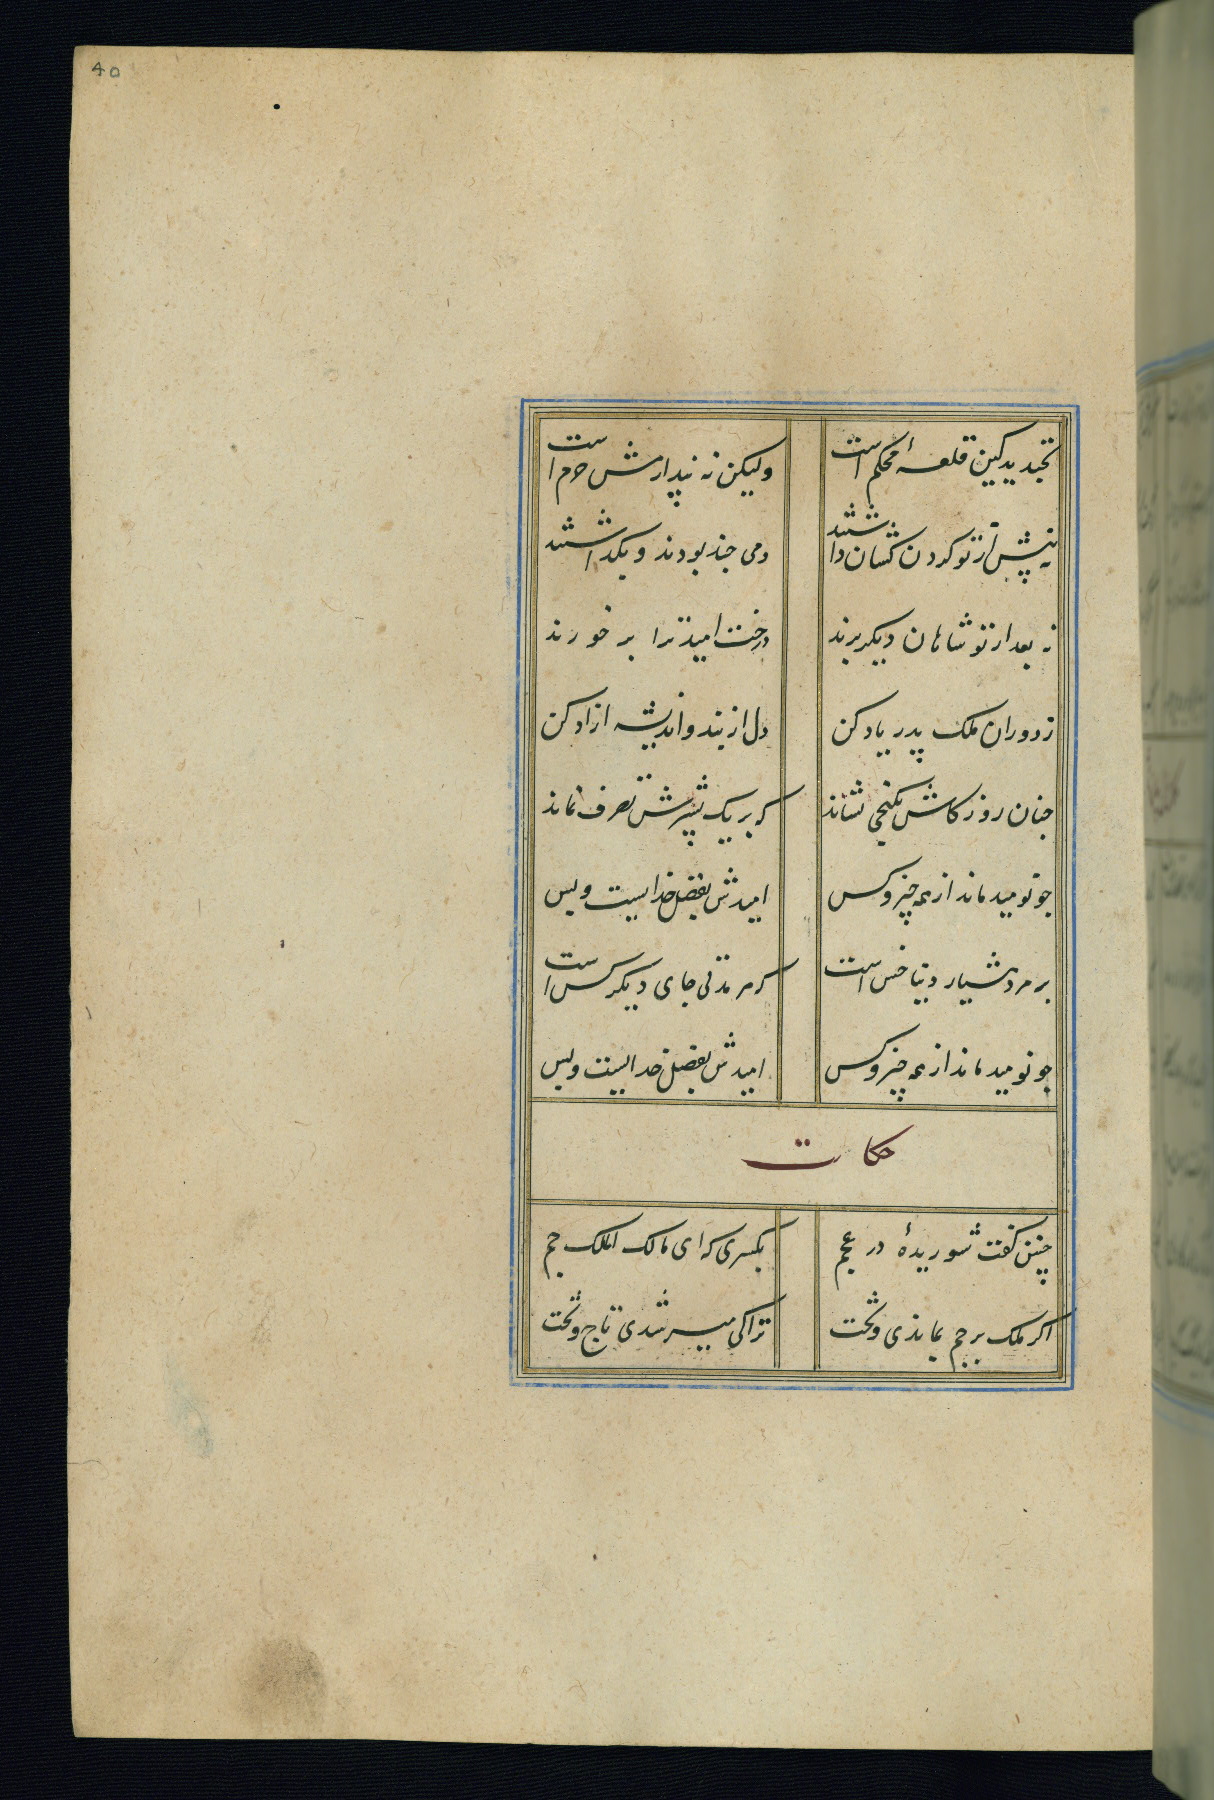 40
بخندید کین قلعهٔ محکم است ولیکن نه پندارمش خرم است
نه پیش از تو کردن کشان داشتند دمی چند بودند و بکذاشتند
نه بعد از تو شاهان دیکر برند درخت امید ترا بر خورند
ز دوران ملک پدر یاد کن دل از بند و اندیشه ازاد کن
چنان روزکارش بکنجی نشاند که بر یک پشیزش تصرف نماند
جو نومید ماند از همه چیز و کس امیدش بفضل خدایست و بس
بر مرد هشیار دنیا خس است که هر مدتی جای دیکر کس است
جو نومید ماند از همه چیز و کس امیدش بفضل خدایست و بس
حکایت
چنین کفت شوریدهٔ در عجم بکسری که ای مالک املک جم
اکر ملک بر جم بماندی و تخت ترا کی میسر شدی تاج و تخت